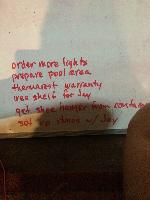 order more lights
prepare pool area
thermarest warranty
use shelf for Jay
get shoe hanger from
set up times w/ Jay